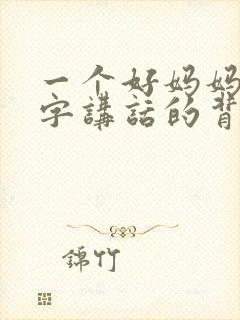 一个好妈妈
字講話的背
錦竹